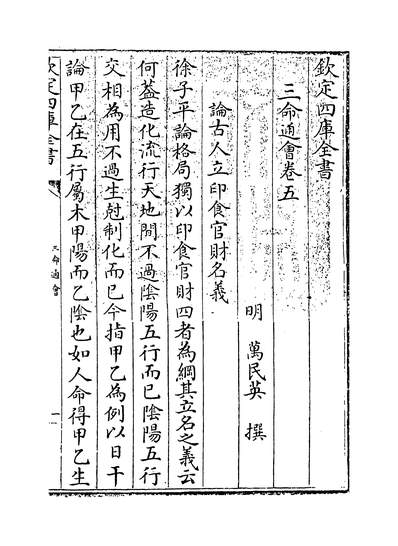 欽定四庫全書
三命通會卷五
明 萬民英 撰
論古人立印食官財名義
徐子平論格局獨以印食官財四者為綱其立名之義云
何葢造化流行天地間不過隂陽五行而已隂陽五行
交相為用不過生尅制化而已今指甲乙為例以日干
論甲乙在五行屬木甲陽而乙隂也如人命得甲乙生
欽定四庫全書
三命通會
一